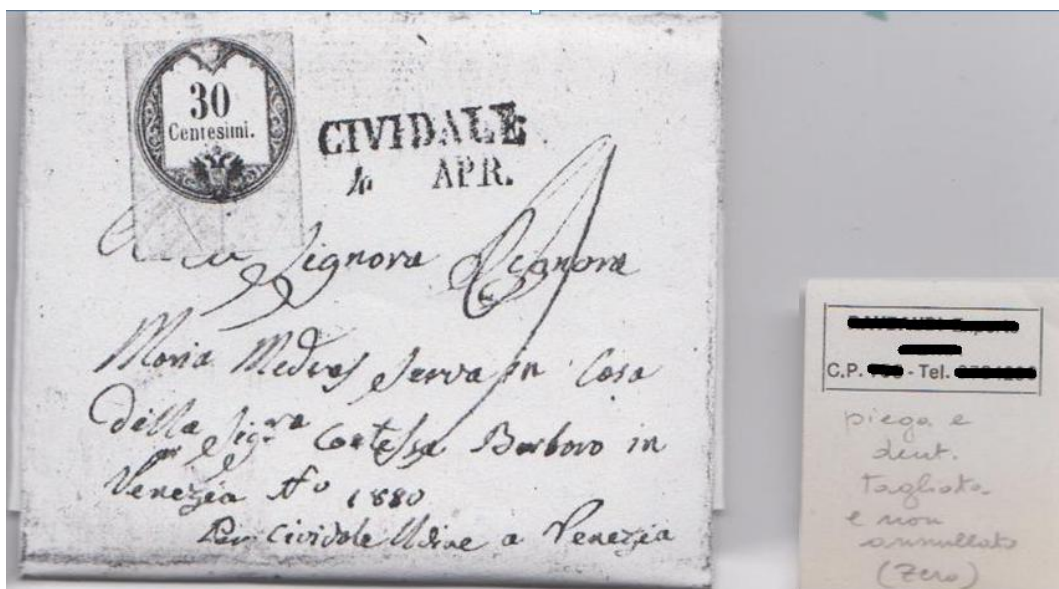 30
Centesimi.
CIVIDALE
APR.
Signora Signora
Maria Medves serva in Casa
della Sig.ra Contessa Barbaro in
Venezia No 1880
Per Cividale Udine a Venezia
C.P. - Tel.
piega e
dent.
tagliata
e non
annullato
(Zero)